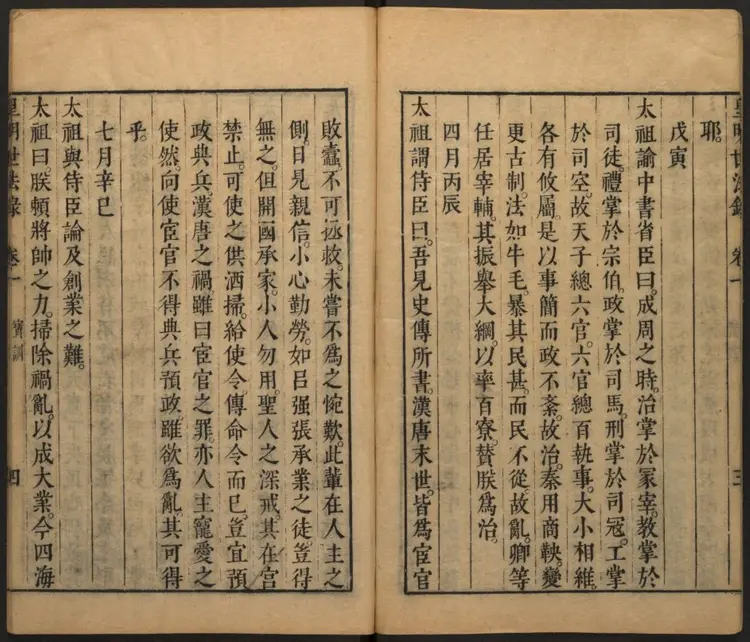 皇明世法錄 卷一 三
耶。
戊寅
太祖諭中書省臣曰。成周之時。治掌於冢宰。教掌於
司徒。禮掌於宗伯。政掌於司馬。刑掌於司冦。工掌
於司空。故天子總六官。六官總百執事。大小相維。
各有攸屬。是以事簡而政不紊。故治。秦用商鞅。變
更古制。法如牛毛。暴其民甚。而民不從。故亂。卿等
任居宰輔。其振舉大綱。以率百寮。賛朕爲治。
四月丙辰
太祖謂侍臣曰。吾見史傳所書。漢唐末世。皆爲宦官
敗蠹。不可拯救。未嘗不爲之惋歎。此輩在人主之
側。日見親信。小心勤勞。如呂强張承業之徒。豈得
無之。但開國承家。小人勿用。聖人之深戒。其在宮
禁。可使之供洒掃。給使令傳命令而已。豈宜預
政典兵。漢唐之禍。雖曰宦官之罪。亦人主寵愛之
使然。向使宦官不得典兵預政。雖欲爲亂。其可得
乎。
七月辛巳
太祖與侍臣論及創業之難。
太祖曰。朕頼將帥之力。掃除禍亂。以成大業。今四海
皇明世法錄 卷一 寶訓 四